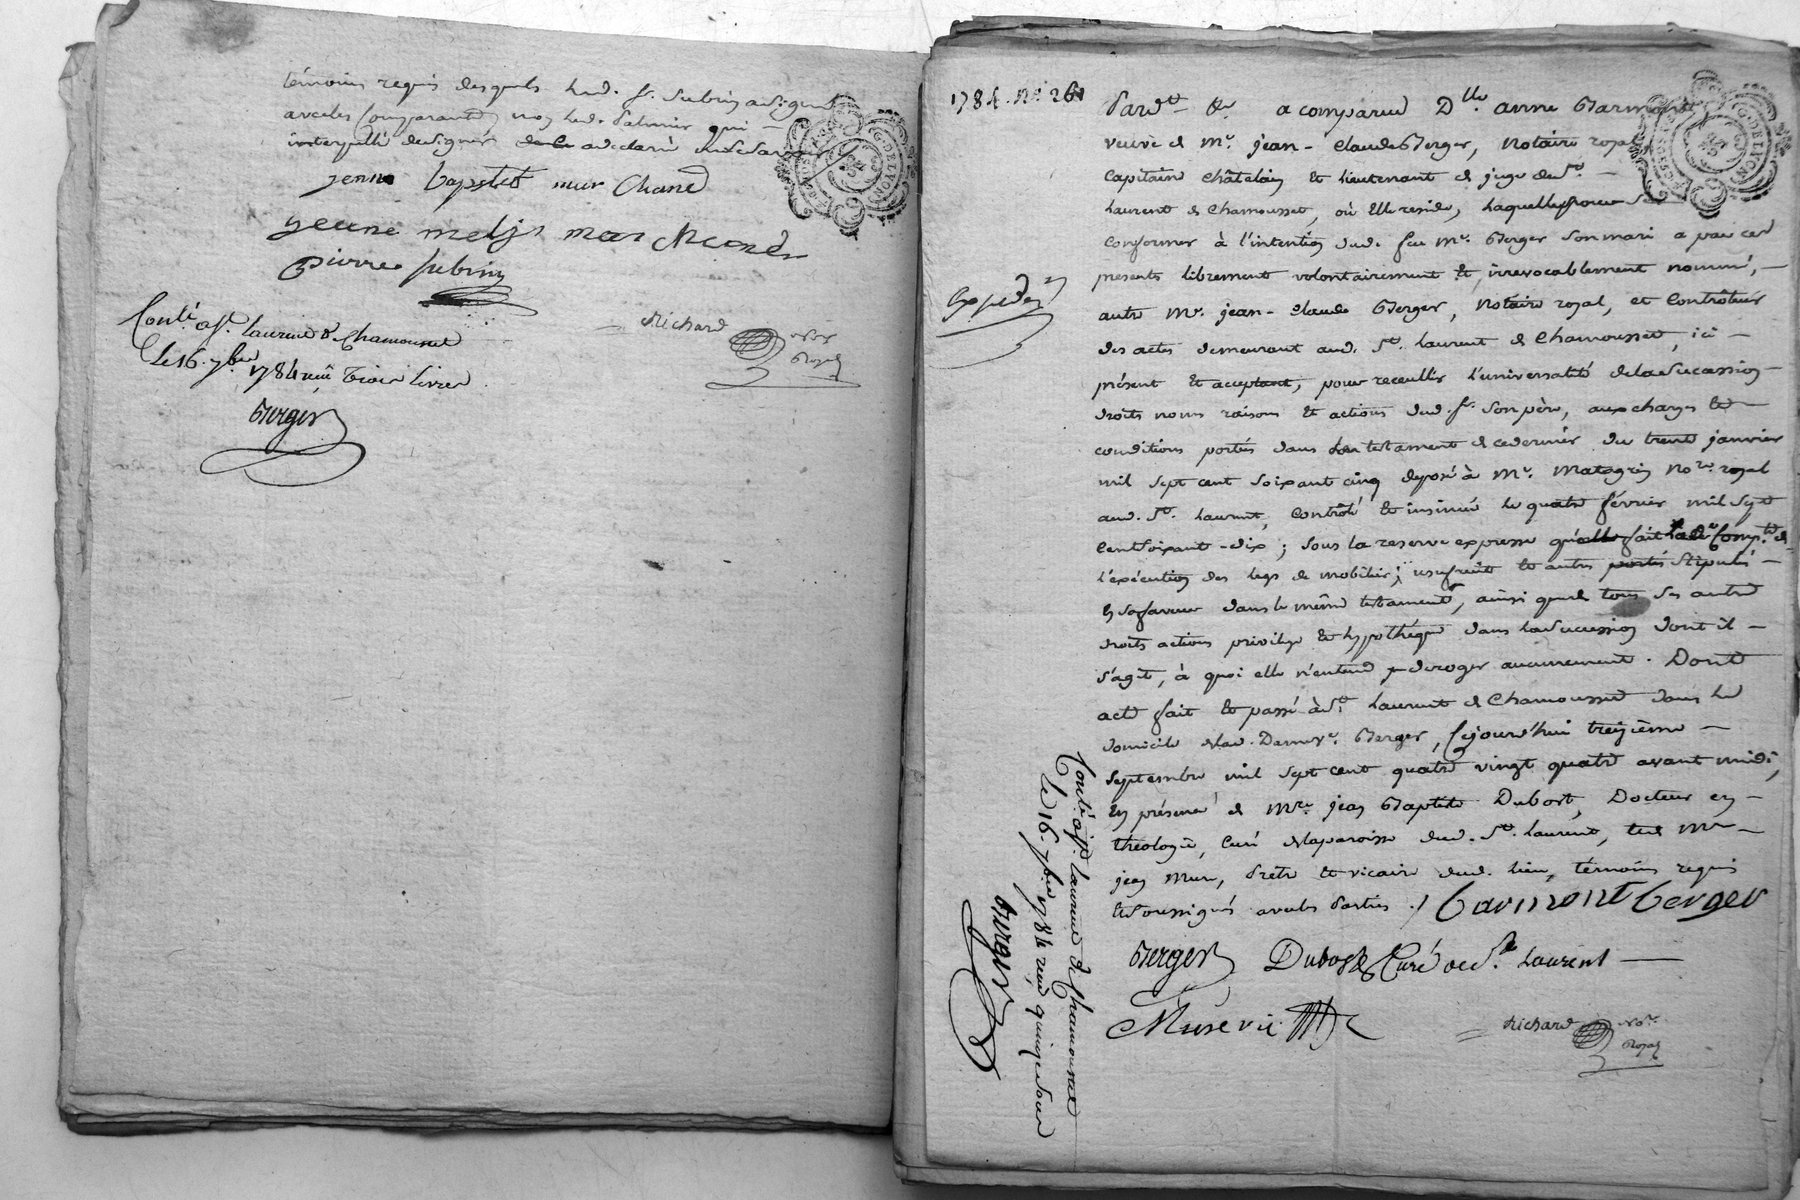 témoins requis desquels led. sr. subrin a signé
avec les comparants non led. palmier qui
interpellé de signer a déclaré ne savoir
jenne baptiste mur Chand
jeune melis mar chand
pierre subrin
Richard Nore
Royal
Conlé. a st. laurent de Chamousset
Le 16. 7bre 1784 reçu trois livres
Berger
1784. No. 261
Pardt. &c a comparu Dlle anne Barmont
veuve de Me. jean-claude Berger, notaire royal
capitaine châtelain et lieutenant de juge de St.
Laurent de Chamousset, où elle reside, laquelle pour se
conformer à l'intention dud. feu Me. Berger son mari a par ces
presents librement volontairement et irrevocablement nommé,
autre Me. jean-claude Berger, notaire royal, et Contrôleur
des actes demeurant aud. St. laurent de Chamousset, ici
présent et acceptant, pour receullir l'universalité de la succession
droits noms raisons et actions dud. sr. son père, aux charges et
conditions portées dans le testament de ce dernier du trente janvier
mil sept cent soixante cinq déposé à Me. Matagrin Nore. royal
aud. St. laurent, contrôlé et insinué le quatre février mil sept
cent soixante-dix; sous la reserve expresse que fait lade. compte. de
l'exécution des legs de mobilier, usufruit et autres stipulés
en sa faveur dans le même testament, ainsi que de tous ses autres
droits actions privilege et hypothéque dans la succession dont il
s'agit, à quoi elle n'entend deroger aucunement. Dont
acte fait et passé à St. laurent de Chamousset dans le
domicile de lad. Dame ve. Berger, Cejourd'hui treizieme
septembre mil sept cent quatre vingt quatre avant midi,
en présence de Mre. jean Baptiste Dubost, Docteur en
théologie, Curé de la paroisse dud. St. laurent, et de Mre
jean Mure, prêtre et vicaire dud. lieu, témoins requis
et soussignés avec les parties ./. barmont berger
Berger Dubost Curé de St. laurent
Mure vic.
Richard Nore.
Royal
Expédié
Conlé. a st. laurent de Chamousset
Le 16. 7bre 1784 reçu quinze sous
Berger